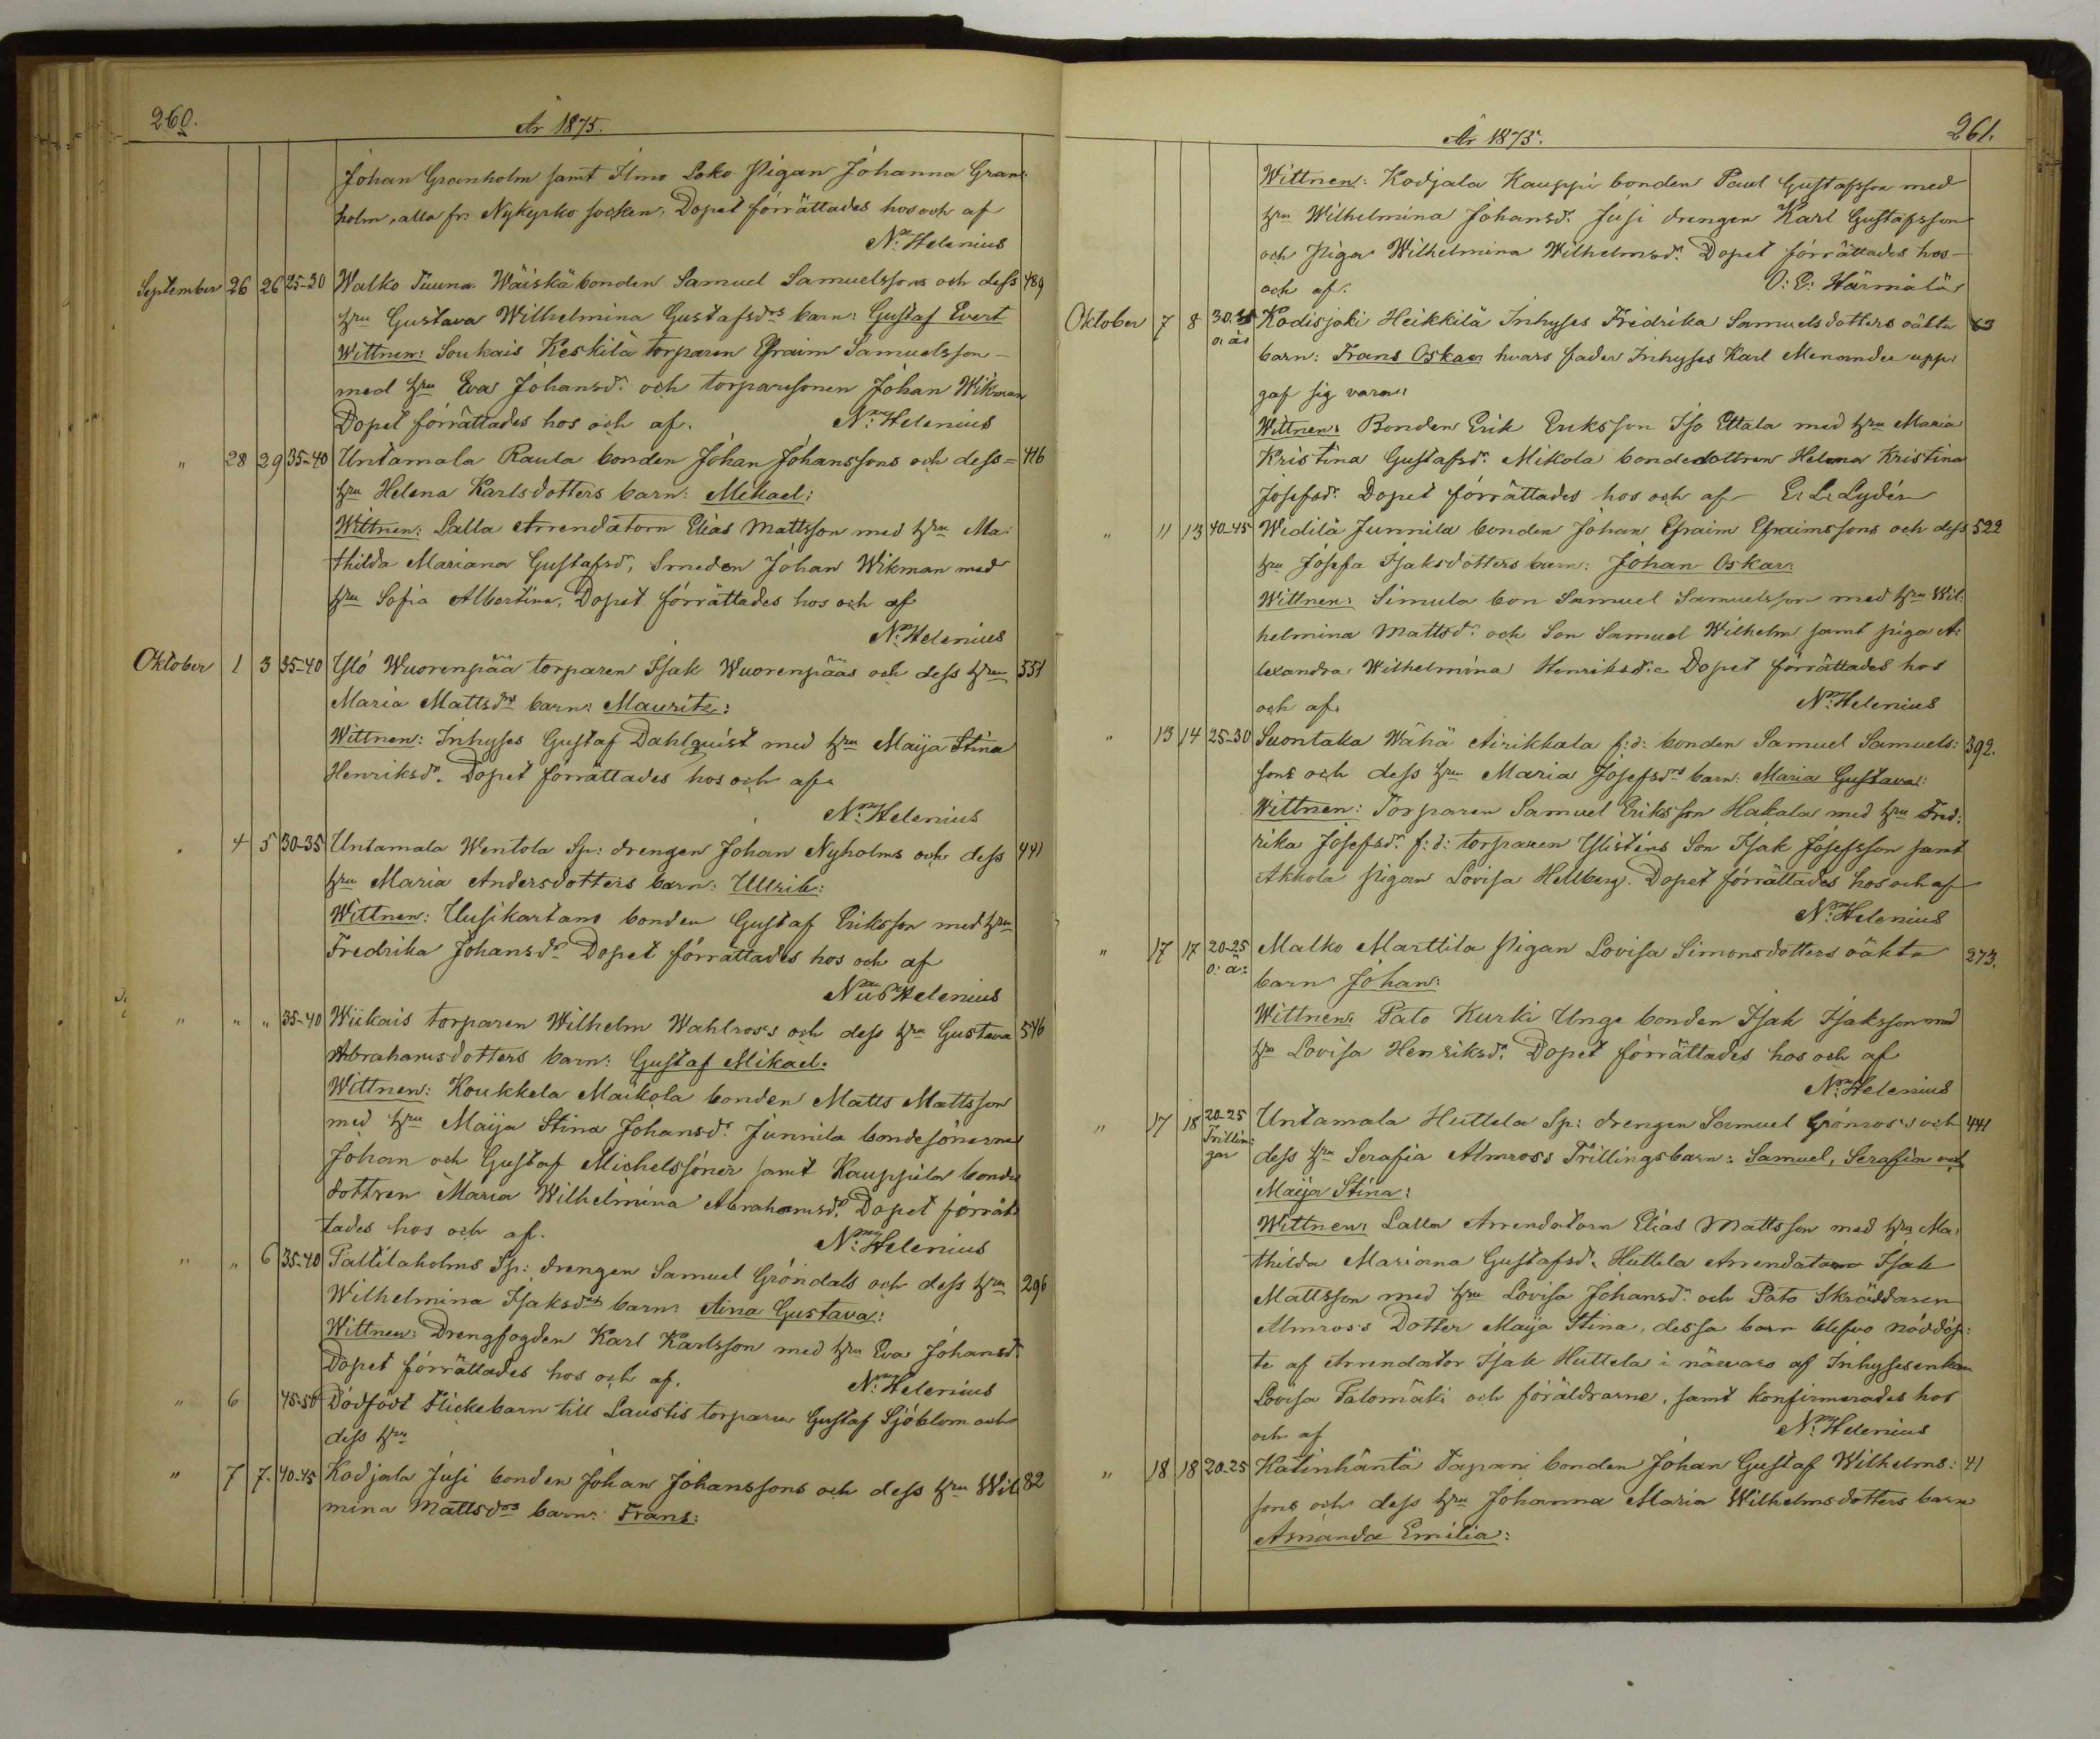 260.
År 1875.
Johan Granholm samt Ilmo Loko Pigan Johanna Gran:
holm, alla fr. Nykyrko socken, Dopet förrättades hos och af
N. Helenius
September 26 26 25-30 Walko Tuuna Wäiskä bonden Samuel Samuelssons och dess 489
hru Gustava Wilhelmina Gustafsdrs barn: Gustaf Evert
Wittnen: Soukais Keskilä torparen Efraim Samuelsson
med hru Eva Johansdr och torparesonen Johan Wikman
Dopet förrättades hos och af. N. Helenius
" 28 29 35-40 Untamala Raula bonden Johan Johanssons och dess= 416
hru Helena Karlsdotters barn: Mikael:
Wittnen: Lalla Arrendatorn Elias Mattsson med hru Ma:
thilda Mariana Gustafsdr, Smeden Johan Wikman med
hru Sofia Albertina, Dopet förrättades hos och af
N. Helenius
Oktober 1 3 35-40 Ylö Wuorenpää torparen Isak Wuorenpääs och dess hru 551
Maria Mattsdrs barn: Mauritz:
Wittnen: Inhyses Gustaf Dahlquist med hru Maija Stina
Henriksdr. Dopet förrättades hos och af
N. Helenius
" 4 5 30-35 Untamala Wentola Sp: drengen Johan Nyholms och dess 441
hru Maria Andersdotters barn: Ullrik:
Wittnen: Uusikartano bonden Gustaf Eriksson med hru
Fredrika Johansdr Dopet förrättades hos och af
Helenius
" " " 35-40 Wiikais torparen Wilhelm Wahlross's och dess hru Gustava 546
Abrahamsdotters barn: Gustaf Mikael.
Wittnen: Koukkela Maikola bonden Matts Mattsson
med hru Maija Stina Johansdr. Junnila bondesönerna
Johan och Gustaf Michelssöner samt Kauppila bonde
dottren Maria Wilhelmina Abrahamsdr. Dopet förrät
tades hos och af. N. Helenius
" " 6 35-40 Palttilaholms Sp: drengen Samuel Gröndals och dess hru 296
Wilhelmina Isaksdrs barn: Aina Gustava:
Wittnen: Drengfogden Karl Karlsson med hru Eva Johansdr
Dopet förrättades hos och af. N. Helenius
" 6 45-50 Dödfödt flickebarn till Laustis torparen Gustaf Sjöblom och
dess hru
" 7 7. 40-45 Kodjala Jusi bonden Johan Johanssons och dess hru Wil 82
mina Mattsdrs barn: Frans:
År 1875.
261.
Wittnen: Kodjala Kauppi bonden Paul Gustafsson med
hru Wilhelmina Johansdr. Jusi drengen Karl Gustafsson
och Piga Wilhelmina Wilhelmsdr. Dopet förrättades hos
och af. O: E: Härmälä
Oktober 7 8 30-35 Kodisjoki Heikkilä Inhyses Fredrika Samuelsdotters oäkta 63
o: ä: barn: Frans Oskar hvars fader Inhyses Karl Menander upp:
gaf sig vara:
Wittnen: Bonden Erik Eriksson Iso Ettala med hru Maria
Kristina Gustafsdr. Mikola bondedottren Helena Kristina
Josefsdr. Dopet förrättades hos och af E. L. Lydén
" 11 13 40-45 Widilä Junnila bonden Johan Efraim Efraimssons och dess 522
hru Josefa Isaksdotters barn: Johan Oskar:
Wittnen: Simula bon Samuel Samuelsson med hru Wil:
helmina Mattsdr. och Son Samuel Wilhelm samt piga A:
lexandra Wilhelmina Henriksdr. Dopet förrättades hos
och af. N. Helenius
" 13 14 25-30 Suontaka Wähä Airikkala f:d: bonden Samuel Samuels: 392.
sons och dess hru Maria Josefsdrs barn: Maria Gustava:
Wittnen: Torparen Samuel Eriksson Hakala med hru Fred:
rika Josefsdr. f:d: torparen Ylisténs Son Isak Josefsson samt
Akkola pigan Lovisa Hellberg. Dopet förrättades hos och af
N. Helenius
" 17 17 20-25 Malko Marttila Pigan Lovisa Simonsdotters oäkta 273.
o: ä: barn Johan:
Wittnen: Pato Kurki Unge bonden Isak Isaksson med
hru Lovisa Henriksdr. Dopet förrättades hos och af
N. Helenius
" 17 18 20-25 Untamala Huttela Sp: drengen Samuel Grönross's och 441
Trillin: gar dess hru Serafia Almross Trillingsbarn: Samuel, Serafia och
Maija Stina:
Wittnen: Lalla Arrendatorn Elias Mattsson med hru Ma:
thilda Marianna Gustafsdr. Huttela Arrendatorn Isak
Mattsson med hru Lovisa Johansdr. och Pato Skräddaren
Almross Dotter Maija Stina, dessa barn blefvo nöddöp:
te af Arrendator Isak Huttela i närvaro af Inhysesenkan
Lovisa Palomäki och föräldrarne, samt konfirmerades hos
och af N. Helenius
" 18 18 20-25 Katinhäntä Tapani bonden Johan Gustaf Wilhelms: 41
sons och dess hru Johanna Maria Wilhelmsdotters barn
Amanda Emilia: